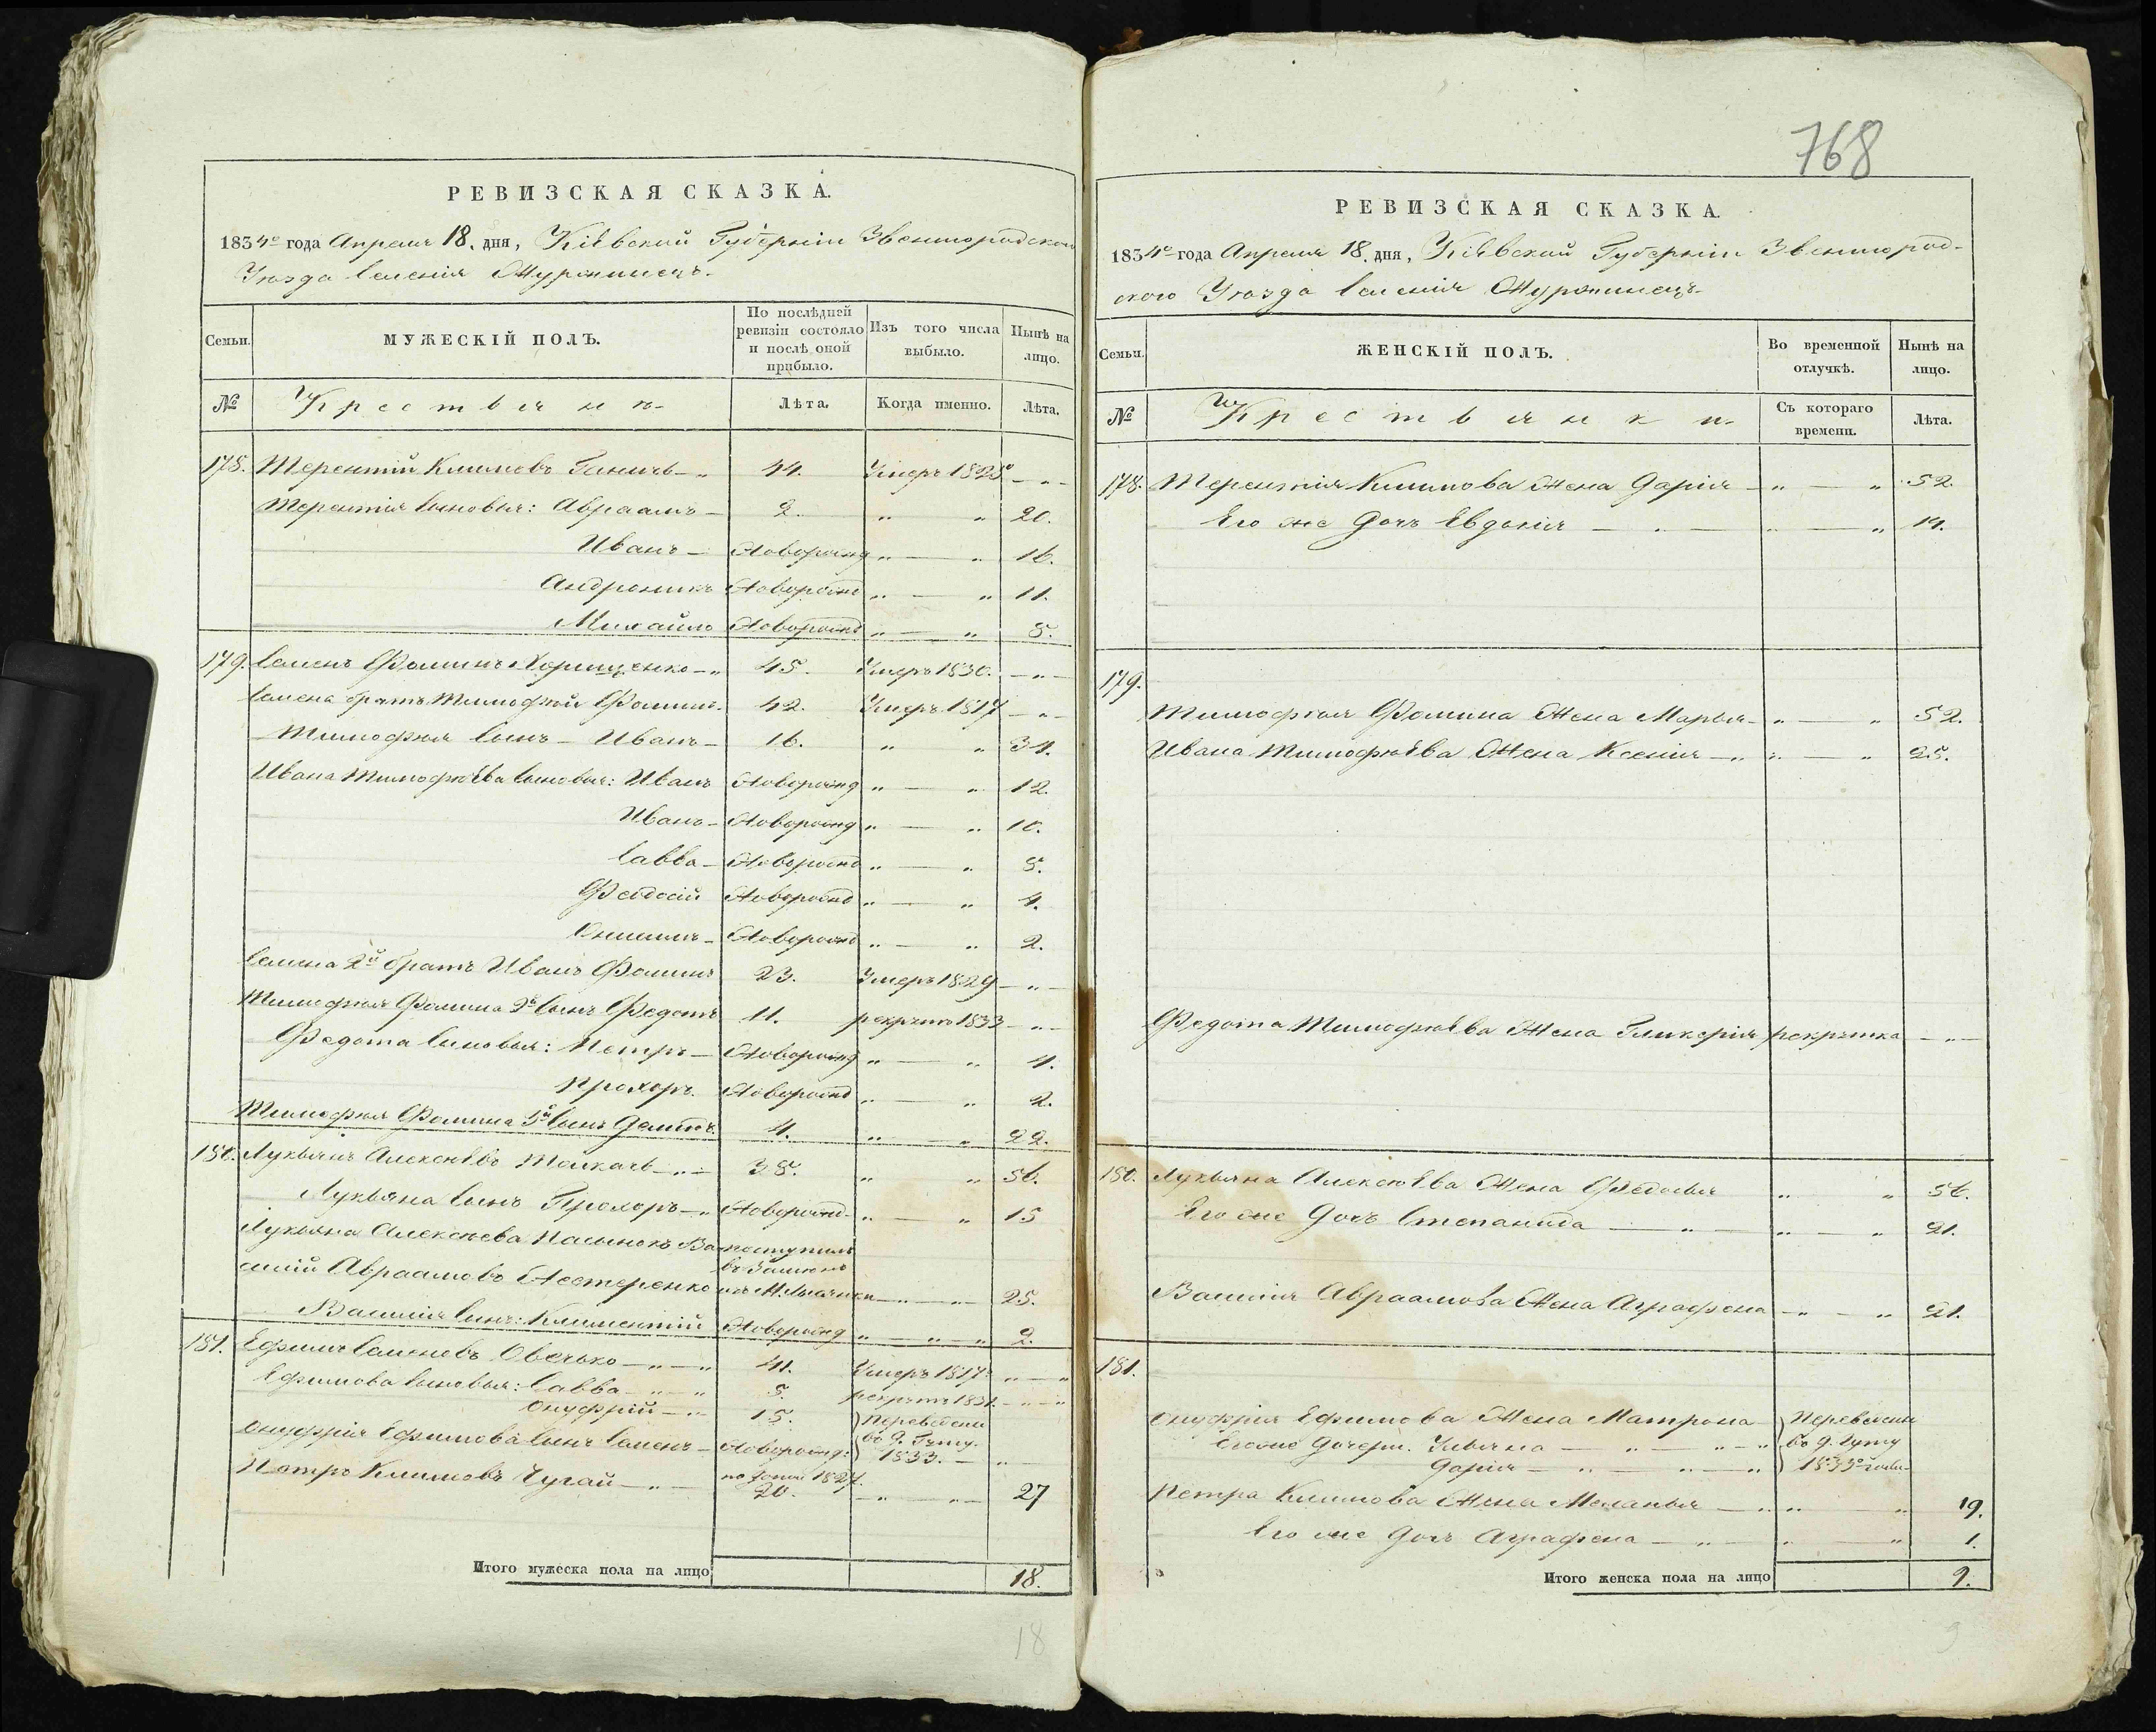 768
РЕВИЗСКАЯ СКАЗКА.
1834го года Апреля 18. дня, Кіевской Губерніи Звенигородского
Уезда Селенія Журжинецъ.
Семьи.
МУЖЕСКІЙ ПОЛЪ.
По послѣдней ревизіи состояло и послѣ оной прибыло.
Изъ того числа выбыло.
Нынѣ на лицо.
№
Крестьяне.
Лѣта.
Когда именно.
Лѣта.
178. Терентій Климовъ 44. Умеръ 1828го
Терентія Сыновья: Авраамъ 2. 20.
Иванъ Новорожд 16.
Андроникъ Новорожд 11.
Михайло Новорожд 8.
179. Семенъ Фоминъ 45. Умеръ 1830.
Семена братъ Тимофей Фоминъ 42. Умеръ 1817
Тимофея Сынъ Иванъ 16. 34.
Ивана Тимофѣева Сыновья: Иванъ Новорожд 12.
Иванъ Новорожд 10.
Савва Новорожд 8.
Феодосій Новорожд 4.
Онисимъ Новорожд 2.
Семена 2й братъ Иванъ Фоминъ 23. Умеръ 1829
Тимофея Фомина 2й Сынъ Федотъ 11. рекрутъ 1833
Федота Сыновья: Петръ Новорожд 4.
Прохоръ. Новорожд 2.
Тимофея Фомина 3й Сынъ 4. 22.
180. Лукьянъ Алексѣевъ Ткачь 38. 56.
Лукьяна Сынъ Прохоръ Новорожд. 15
Лукьяна Алексѣева Пасынокъ Ва- поступилъ
силій Авраамовъ Нестеренко 25.
Василія Сынъ: Климентій Новорожд 2.
181. Ефимъ Семеновъ Овечько 41. Умеръ 1817
Ефимова Сыновья: Савва 5. рекрутъ 1831.
Онуфрій 15. Переведены
Онуфрія Ефимова Сынъ Семенъ Новорожд: 1833.
Петръ Климовъ Чугай 1827. 20. 27
Итого мужеска пола на лицо 18.
18
РЕВИЗСКАЯ СКАЗКА.
1834го года Апреля 18. дня, Кіевской Губерніи Звенигород-
ского Уезда Селенія Журжинецъ.
Семьи.
ЖЕНСКІЙ ПОЛЪ.
Во временной отлучкѣ.
Нынѣ на лицо.
№
Крестьянки.
Съ котораго времени.
Лѣта.
178. Терентія Климова Жена Дарія 52.
Его же Дочь Евдокія 14.
179.
Тимофея Фомина Жена Марья 52.
Ивана Тимофѣева Жена Ксенія 25.
Федота Тимофѣева Жена Гликерія рекрутка
180. Лукьяна Алексѣева Жена Федосья 56.
Его же Дочь Степанида 21.
Василія Авраамова Жена Аграфена 21.
181.
Онуфрія Ефимова Жена Матрона Переведены
Его же Дочери: Ульяна
Дарія 1833го года
Петра Климова Жена Меланья 19.
Его же Дочь Аграфена 1.
Итого женска пола на лицо 9.
9